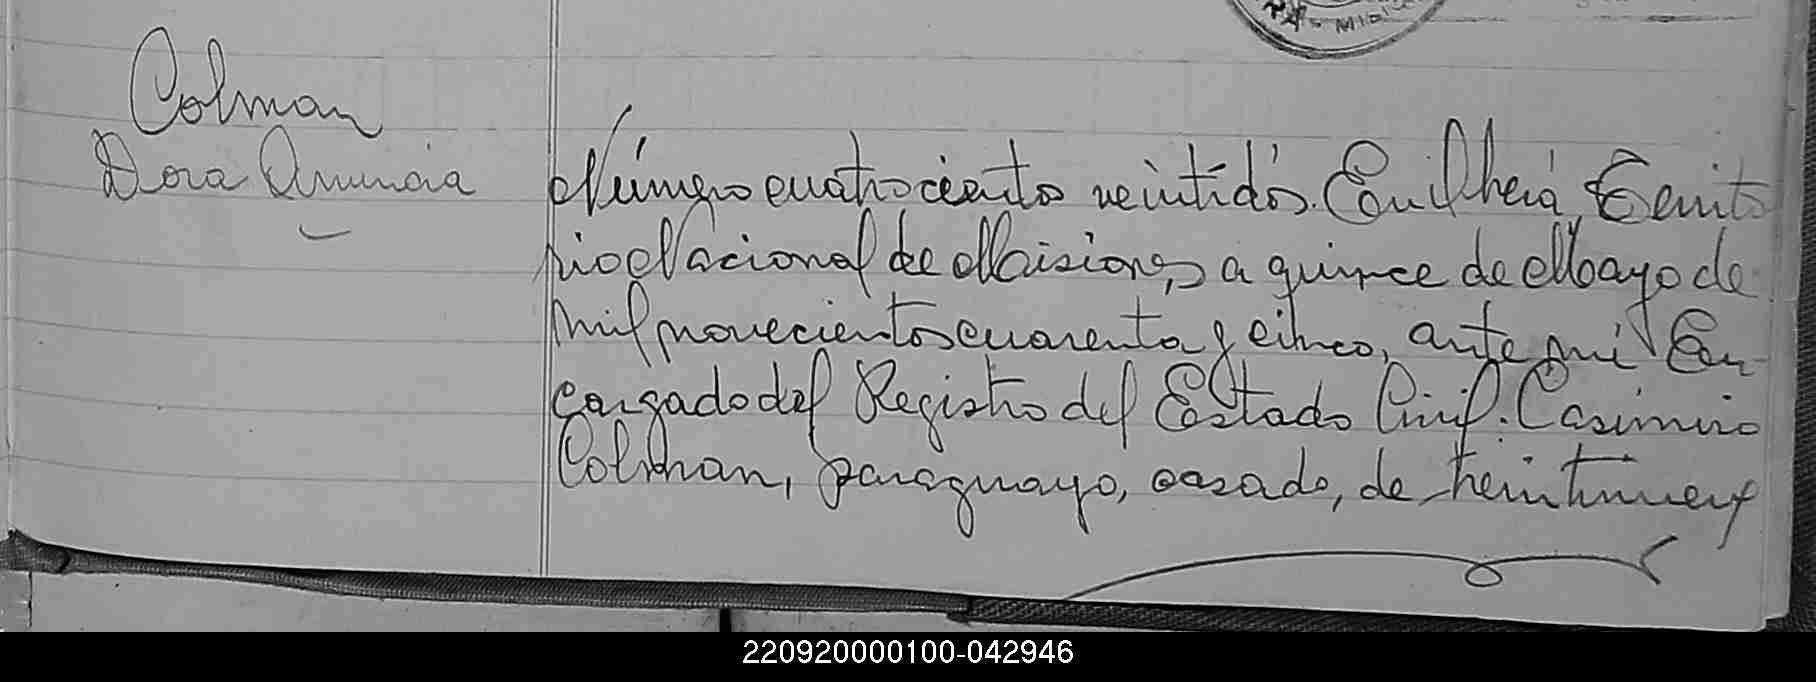 Colman
Dora Anuncia
Número cuatrocientos veintidós. En Ilheiá, Territo
rio Nacional de Misiones, a quince de Mayo de
mil novecientos cuarenta y cinco, ante mi En
cargado del Registro del Estado Civil. Casimiro
Colman, paraguayo, casado, de treintinueve
220920000100-042946